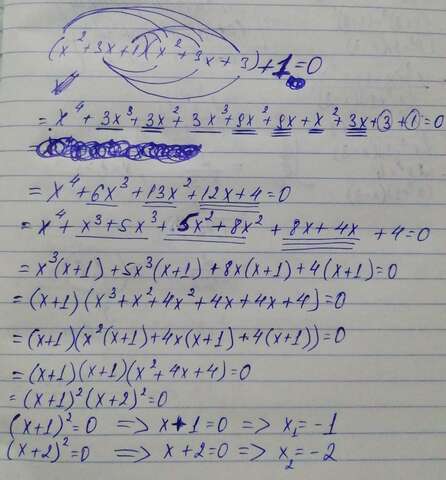 (x²+3x+1)(x²+3x+3)+1=0
= x⁴+3x³+3x²+3x³+9x²+9x+x²+3x+3+1=0
= x⁴+6x³+13x²+12x+4=0
= x⁴+x³+5x³+5x²+8x²+8x+4x+4=0
= x³(x+1)+5x³(x+1)+8x(x+1)+4(x+1)=0
=(x+1)(x³+x²+4x²+4x+4x+4)=0
=(x+1)(x²(x+1)+4x(x+1)+4(x+1))=0
=(x+1)(x+1)(x²+4x+4)=0
=(x+1)²(x+2)²=0
(x+1)²=0 => x+1=0 => x₁=-1
(x+2)²=0 => x+2=0 => x₂=-2